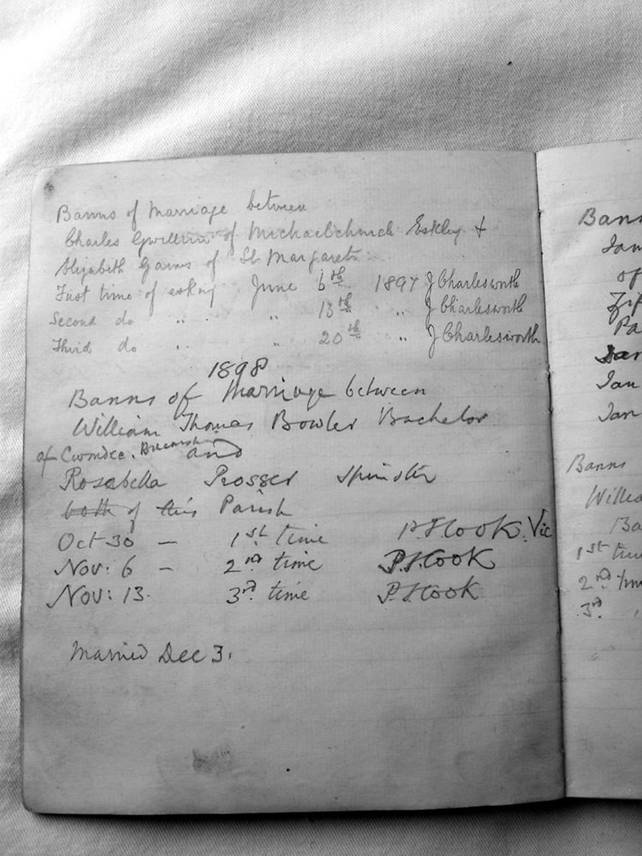 Banns of Marriage between
Charles Gwilliam of Michaelchurch Eskley +
Elizabeth Gains of St. Margarets
First time of asking June 6th 1897 J Charlesworth
Second do " " " 13th " J Charlesworth
Third do " " " 20th " J Charlesworth
1898
Banns of Marriage between
William Thomas Bowler Bachelor
of and
Rosabella Prosser Spinster
both of this Parish
Oct 30 — 1st time Cook. Vic
Nov: 6 — 2nd time Cook
Nov: 13. 3rd time Cook
Married Dec 3.
Bann
Jan
of
Pa
Jan
Jan
Jan
Banns
Willia
Ba
1st tim
2nd tim
3rd